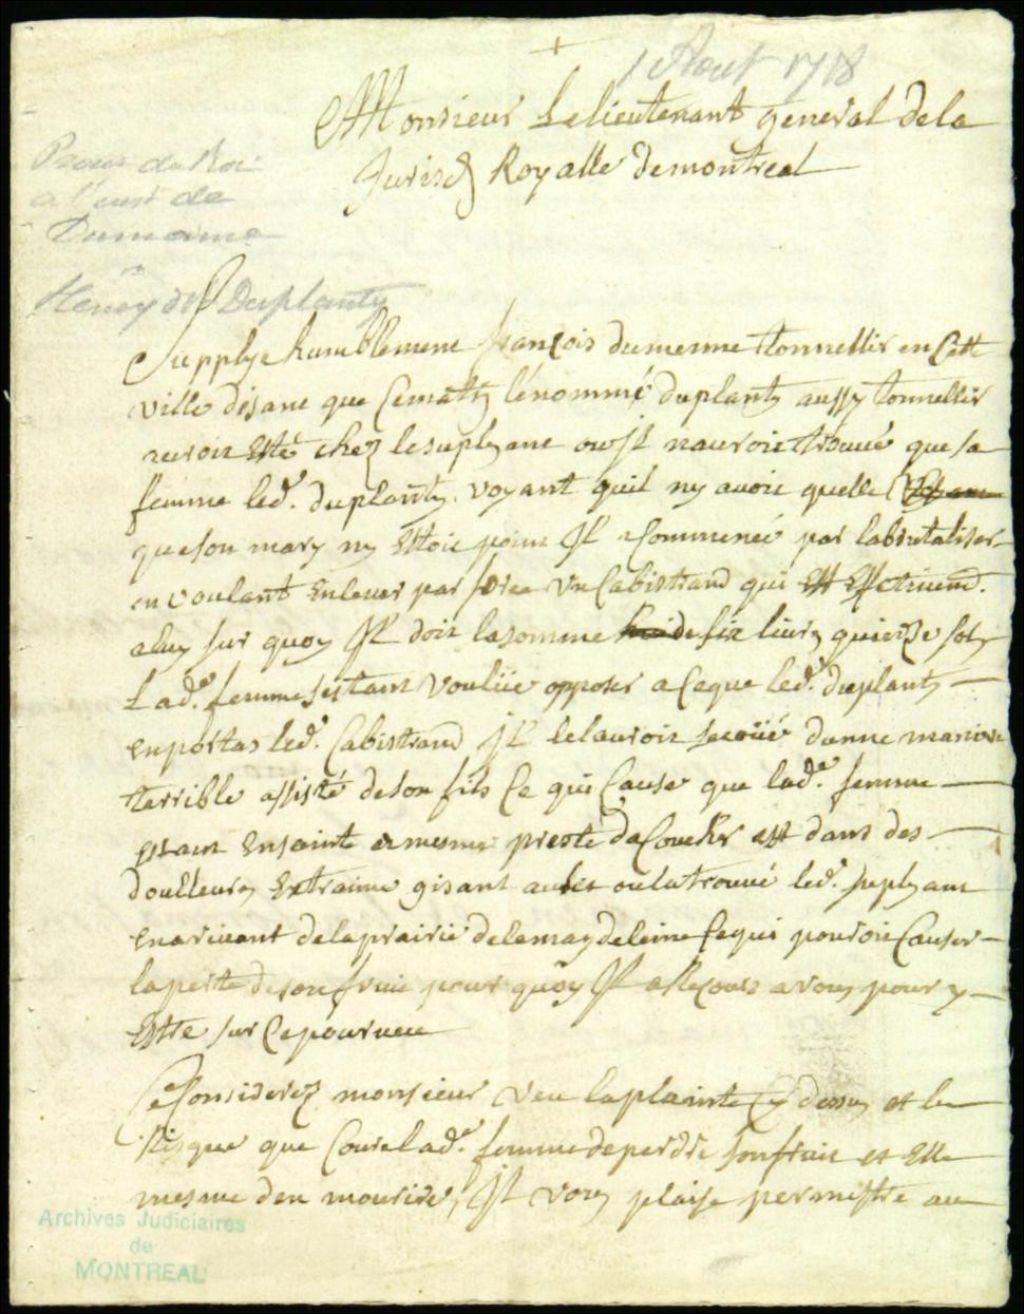 1 Aout 1718
Monsieur Lelieutenant general dela
Jurisd Royalle demontreal
Proces du Roi
a l'enst de
Dumaine
Henry dit Duplanty
Supplye humblement françois dumenne tonnellir en Cett
ville disant que Cematin lénommé duplanty aussy tonnellir
auroit Esté chez lesuplyant ou Jl nauroit trouvé que sa
femme led. duplanty. voyant quil ny avoit quelle
queson mary ny Estoit point Jl a Commencé par labrutaliser
en voulant Enlever par force Un Cabistrand qui Est Effectivemt.
aluy sur quoy Jl doit lasomme de six livres quinze sols
Lade. femme sestant voulüe opposer aCeque led. duplanty
enportas led. Cabistrand Jl lelauroit secoüé dunne maniere
terrible assisté deson fils Ce qui Cause que lade. femme
estant Ensainte et mesme preste daCoucher est dans des
doulleurs Extraime gisant aulit oulatrouvé led. suplyant
enarivant delaprairie delamagdeleine Cequi pouroit Causer
laperte desonfruit pour quoy Jl a Recours avous pour y
Estre sur Ce pourveu
CeConsideré monsieur veu laplainte Cy dessus et le
Risque que Court lade. femme deperdre sonfruit et Elle
mesme den mourire, Jl vous plaise permettre au
Archives Judiciaires
de
MONTREAL